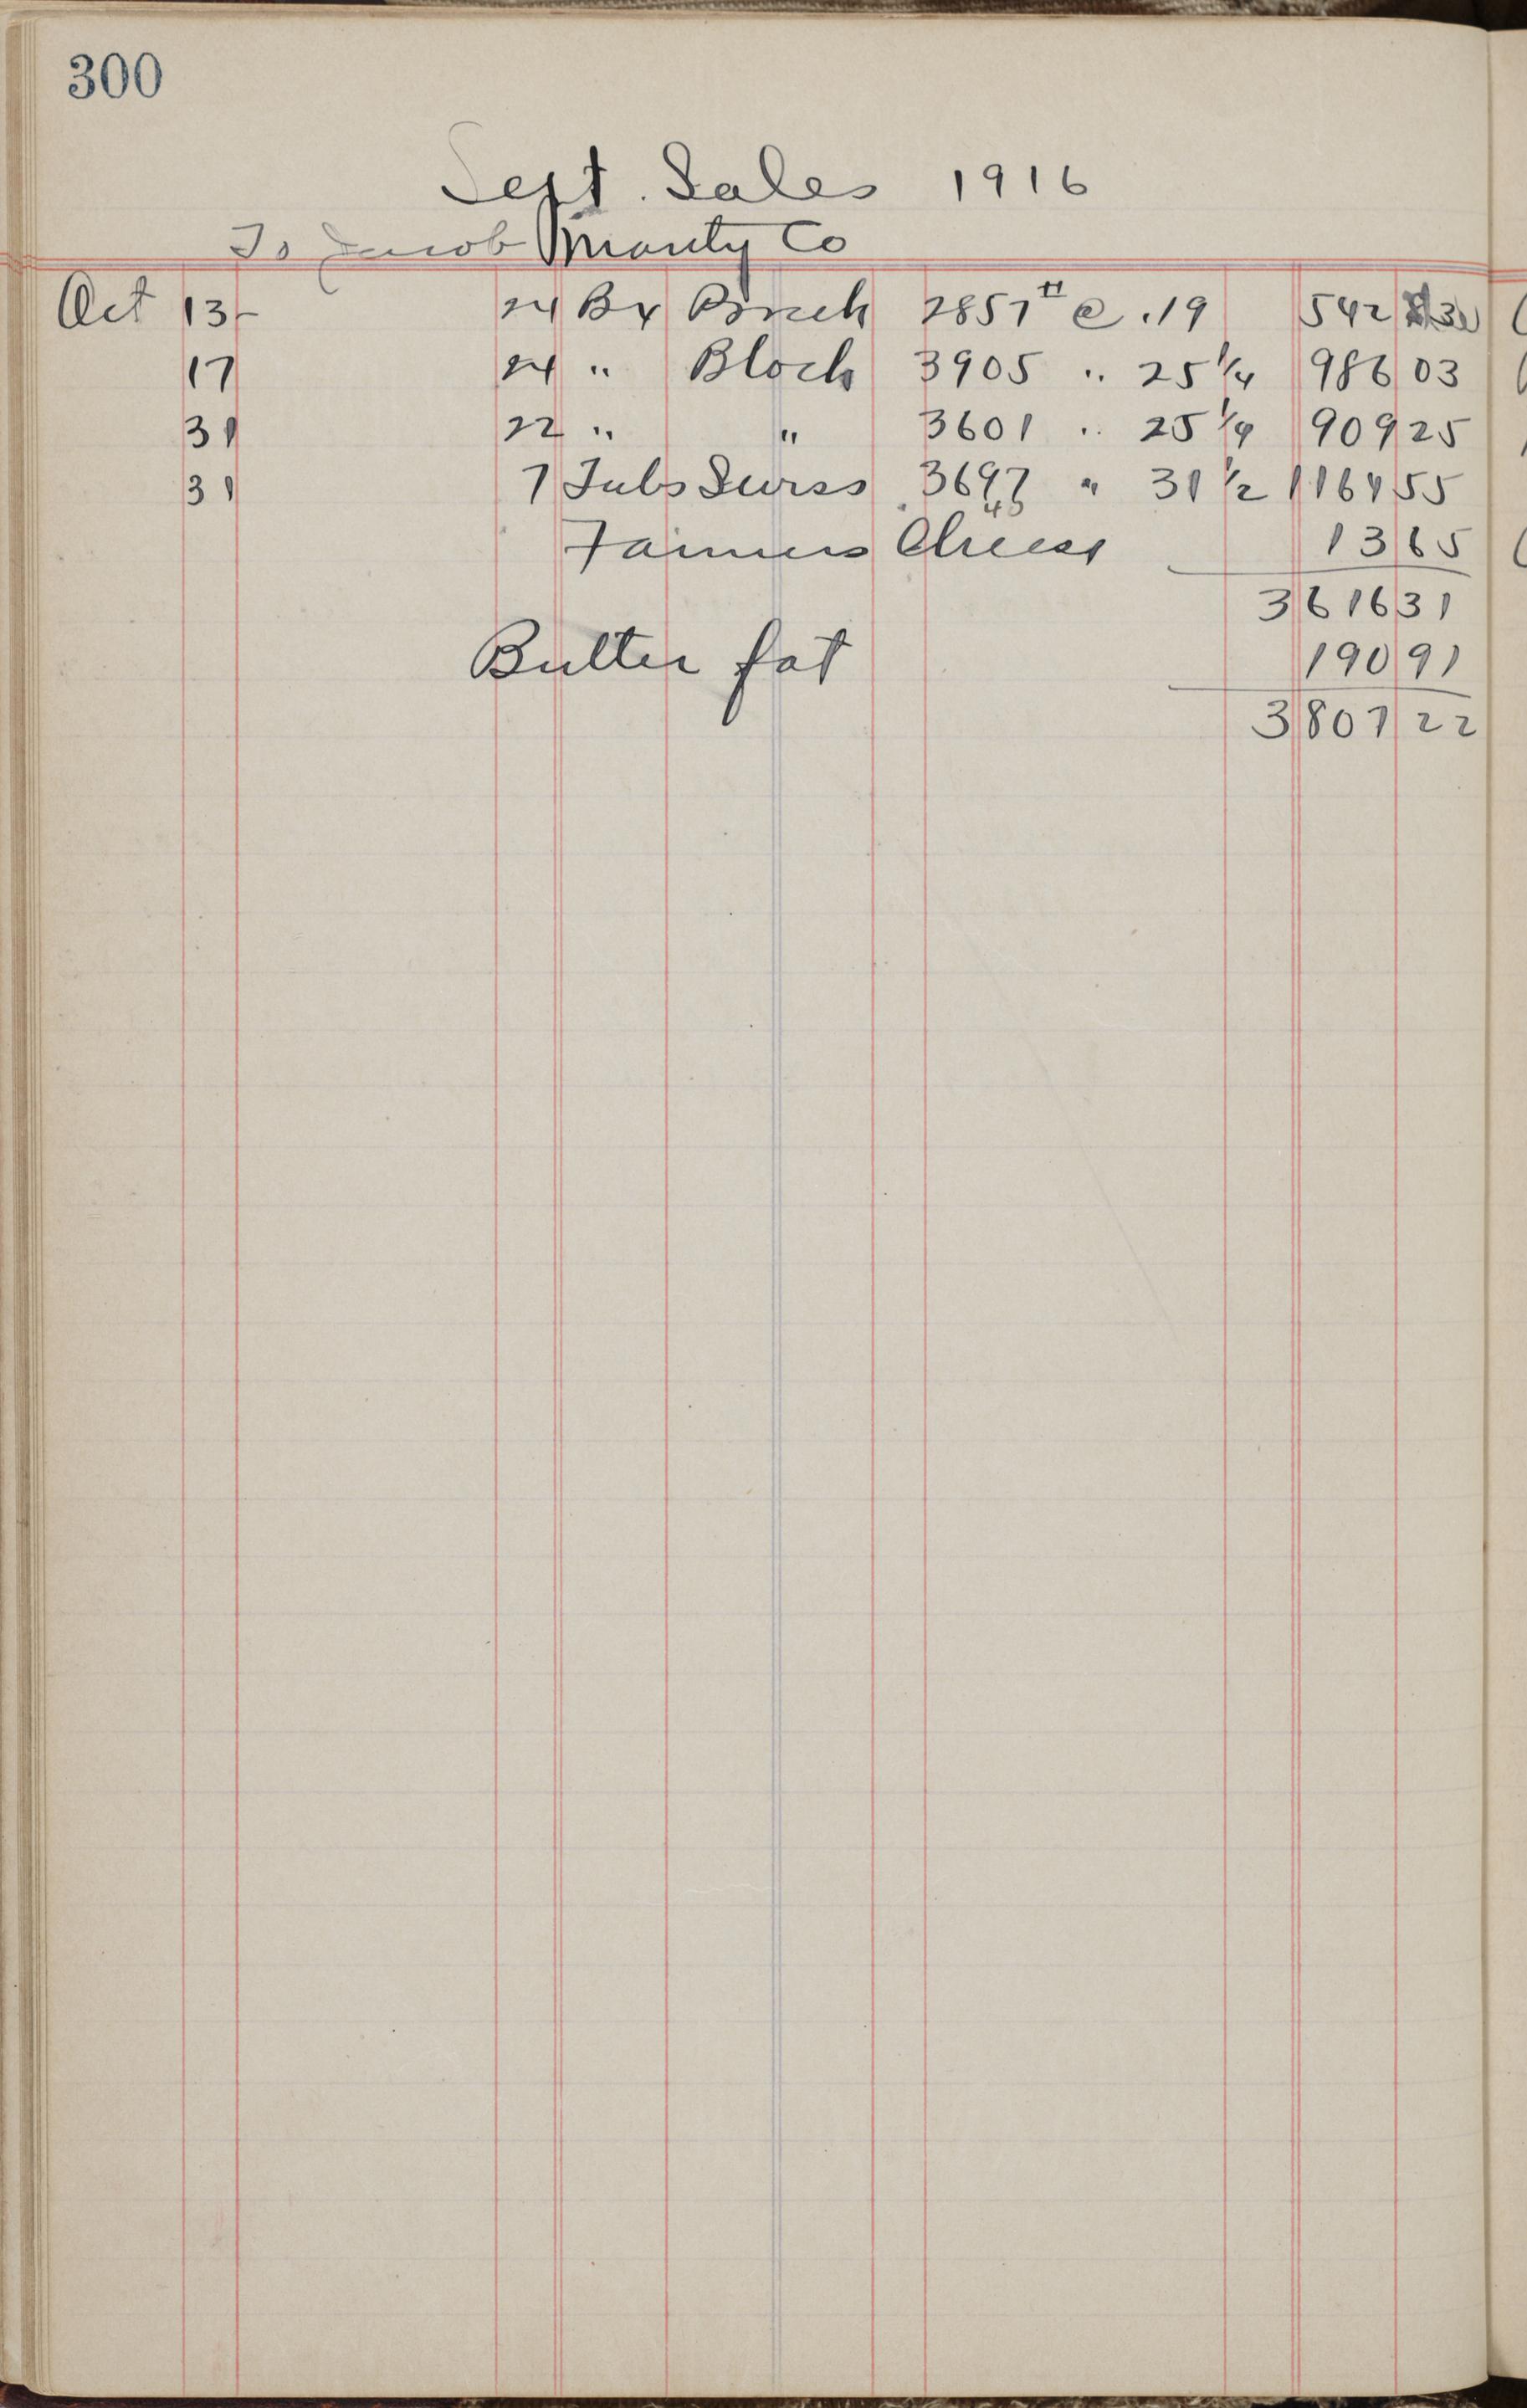 300
Sept. Sales 1916
To Jacob Marty Co
Oct 13- 24 Bx Brick 2857# @ .19 542 83
17 24 " Block 3905 " 25 1/4 986 03
31 22 " " 3601 " 25 1/4 909 25
31 7 Tubs Swiss 3697 " 31 1/2 1164 55
Farmers Cheese 13 65
3616 31
Butter fat 190 91
3807 22